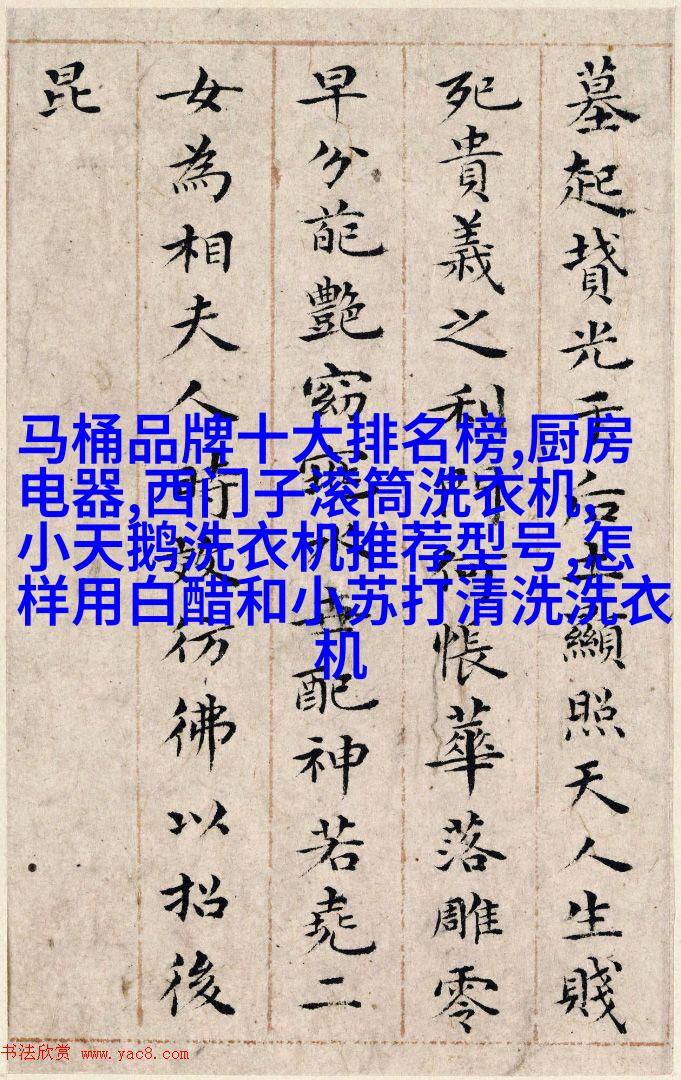 墓起墳光于后土顯照天人生賤
死貴義之利門何悵華落雕零
早分葩艷窈窕永世配神若堯二
女為相夫人時效仿彿以招後
昆
马桶品牌十大排名榜,厨房
电器,西门子滚筒洗衣机,
小天鹅洗衣机推荐型号,怎
样用白醋和小苏打清洗洗衣
机
书法欣赏 www.yac8.com